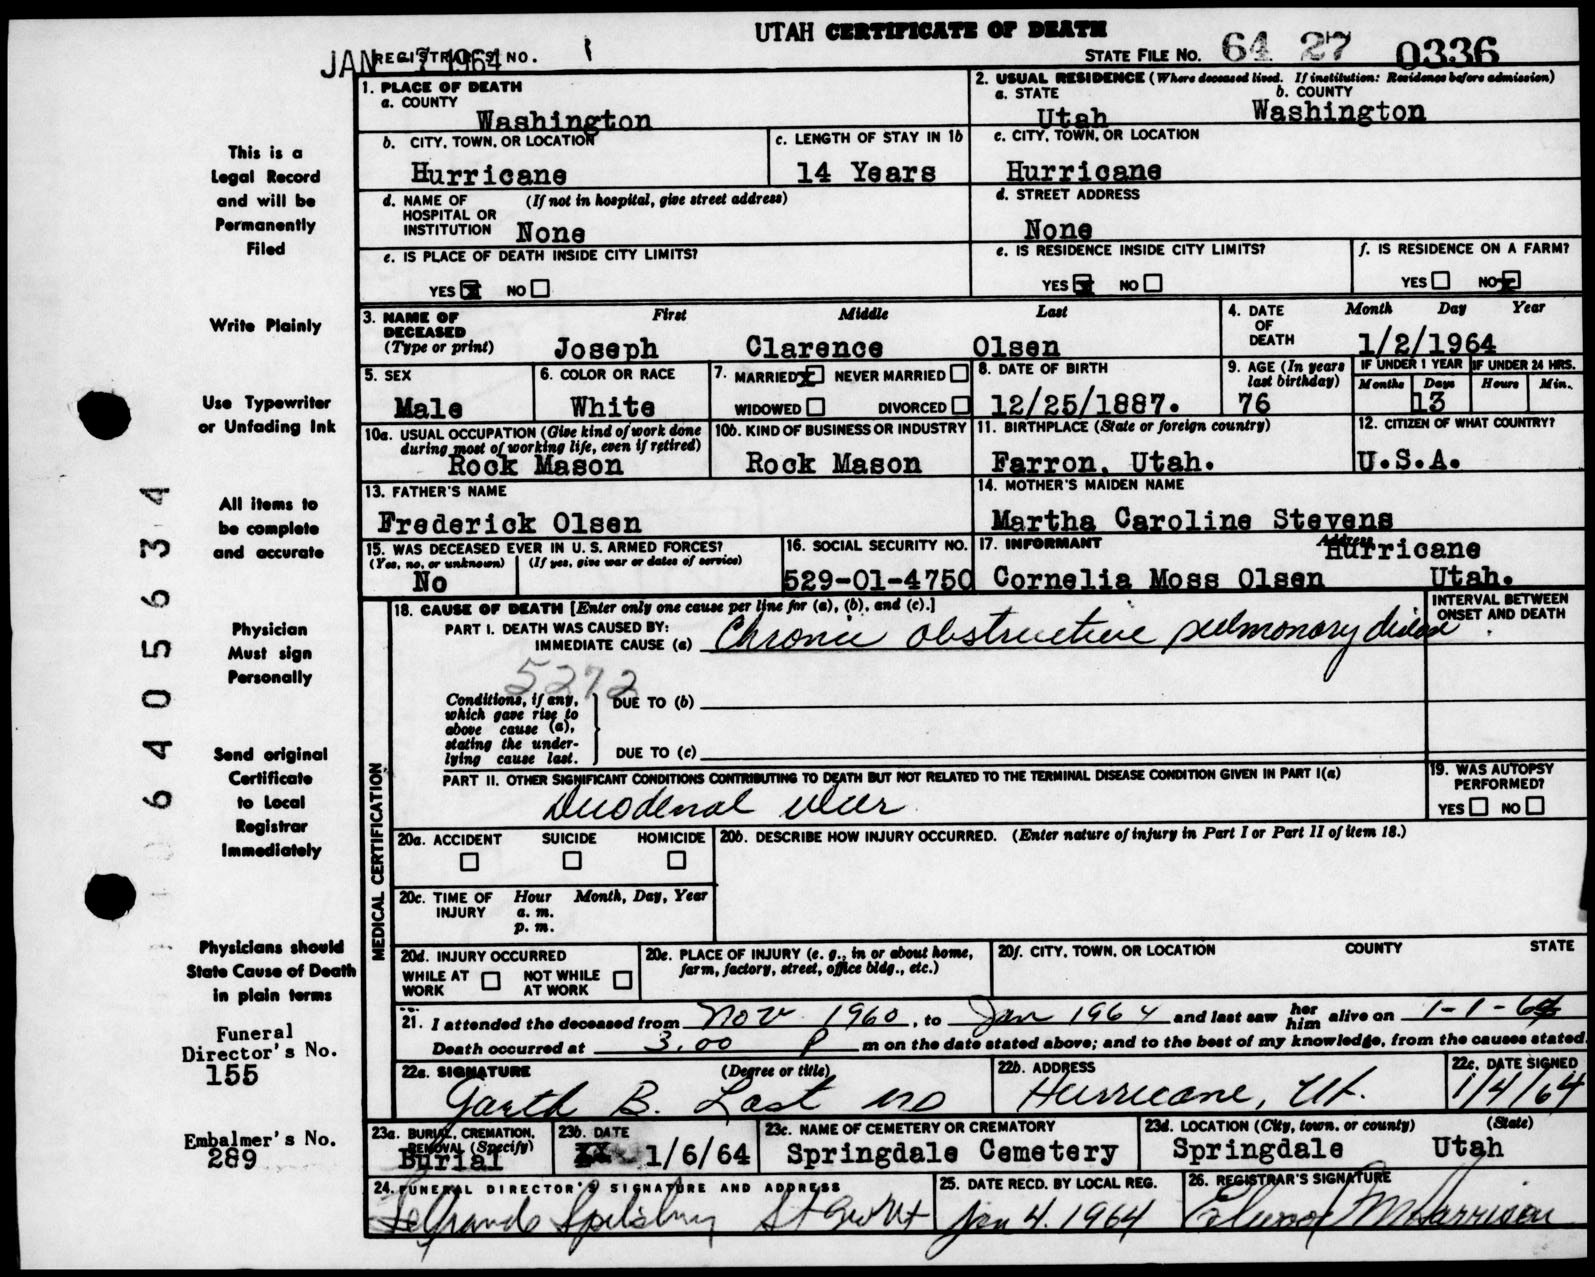 UTAH CERTIFICATE OF DEATH
JAN 7 1964 REGISTRAR'S NO. 1
STATE FILE NO. 64 27 0336
1. PLACE OF DEATH
a. COUNTY
Washington
2. USUAL RESIDENCE (Where deceased lived. If institution: Residence before admission)
a. STATE b. COUNTY
Utah Washington
b. CITY, TOWN, OR LOCATION
Hurricane
c. LENGTH OF STAY IN 1b
14 Years
c. CITY, TOWN, OR LOCATION
Hurricane
d. NAME OF HOSPITAL OR INSTITUTION (If not in hospital, give street address)
None
d. STREET ADDRESS
None
e. IS PLACE OF DEATH INSIDE CITY LIMITS?
YES NO
e. IS RESIDENCE INSIDE CITY LIMITS?
YES NO
f. IS RESIDENCE ON A FARM?
YES NO
3. NAME OF DECEASED (Type or print)
First Middle Last
Joseph Clarence Olsen
4. DATE OF DEATH
Month Day Year
1/2/1964
5. SEX
Male
6. COLOR OR RACE
White
7. MARRIED NEVER MARRIED
WIDOWED DIVORCED
8. DATE OF BIRTH
12/25/1887.
9. AGE (In years last birthday)
76
IF UNDER 1 YEAR IF UNDER 24 HRS.
Months Days Hours Min.
13
10a. USUAL OCCUPATION (Give kind of work done
during most of working life, even if retired)
Rock Mason
10b. KIND OF BUSINESS OR INDUSTRY
Rock Mason
11. BIRTHPLACE (State or foreign country)
Farron, Utah.
12. CITIZEN OF WHAT COUNTRY?
U.S.A.
13. FATHER'S NAME
Frederick Olsen
14. MOTHER'S MAIDEN NAME
Martha Caroline Stevens
15. WAS DECEASED EVER IN U. S. ARMED FORCES?
(Yes, no, or unknown) (If yes, give war or dates of service)
No
16. SOCIAL SECURITY NO.
529-01-4750
17. INFORMANT Address
Hurricane
Cornelia Moss Olsen Utah.
18. CAUSE OF DEATH [Enter only one cause per line for (a), (b), and (c).]
PART I. DEATH WAS CAUSED BY:
IMMEDIATE CAUSE (a) Chronic obstructive pulmonary disease
INTERVAL BETWEEN
ONSET AND DEATH
5272
Conditions, if any,
which gave rise to
above cause (a),
stating the under-
lying cause last.
DUE TO (b)
DUE TO (c)
PART II. OTHER SIGNIFICANT CONDITIONS CONTRIBUTING TO DEATH BUT NOT RELATED TO THE TERMINAL DISEASE CONDITION GIVEN IN PART I(a)
Duodenal ulcer
19. WAS AUTOPSY
PERFORMED?
YES NO
MEDICAL CERTIFICATION
20a. ACCIDENT SUICIDE HOMICIDE
20b. DESCRIBE HOW INJURY OCCURRED. (Enter nature of injury in Part I or Part II of item 18.)
20c. TIME OF INJURY
Hour Month, Day, Year
a. m.
p. m.
20d. INJURY OCCURRED
WHILE AT WORK NOT WHILE AT WORK
20e. PLACE OF INJURY (e. g., in or about home,
farm, factory, street, office bldg., etc.)
20f. CITY, TOWN, OR LOCATION COUNTY STATE
21. I attended the deceased from Nov 1960, to Jan 1964 and last saw her him alive on 1-1-64
Death occurred at 3.00 P m on the date stated above; and to the best of my knowledge, from the causes stated.
22a. SIGNATURE (Degree or title)
Garth B. Last MD
22b. ADDRESS
Hurricane, Ut.
22c. DATE SIGNED
1/4/64
23a. BURIAL, CREMATION,
REMOVAL (Specify)
Burial
23b. DATE
1/6/64
23c. NAME OF CEMETERY OR CREMATORY
Springdale Cemetery
23d. LOCATION (City, town, or county) (State)
Springdale Utah
24. FUNERAL DIRECTOR'S SIGNATURE AND ADDRESS
LeGrande Spilsbury St Geo Ut
25. DATE RECD. BY LOCAL REG.
Jan 4. 1964
26. REGISTRAR'S SIGNATURE
M Harrison
This is a
Legal Record
and will be
Permanently
Filed
Write Plainly
Use Typewriter
or Unfading Ink
All items to
be complete
and accurate
Physician
Must sign
Personally
Send original
Certificate
to Local
Registrar
Immediately
Physicians should
State Cause of Death
in plain terms
Funeral
Director's No.
155
Embalmer's No.
289
6405634